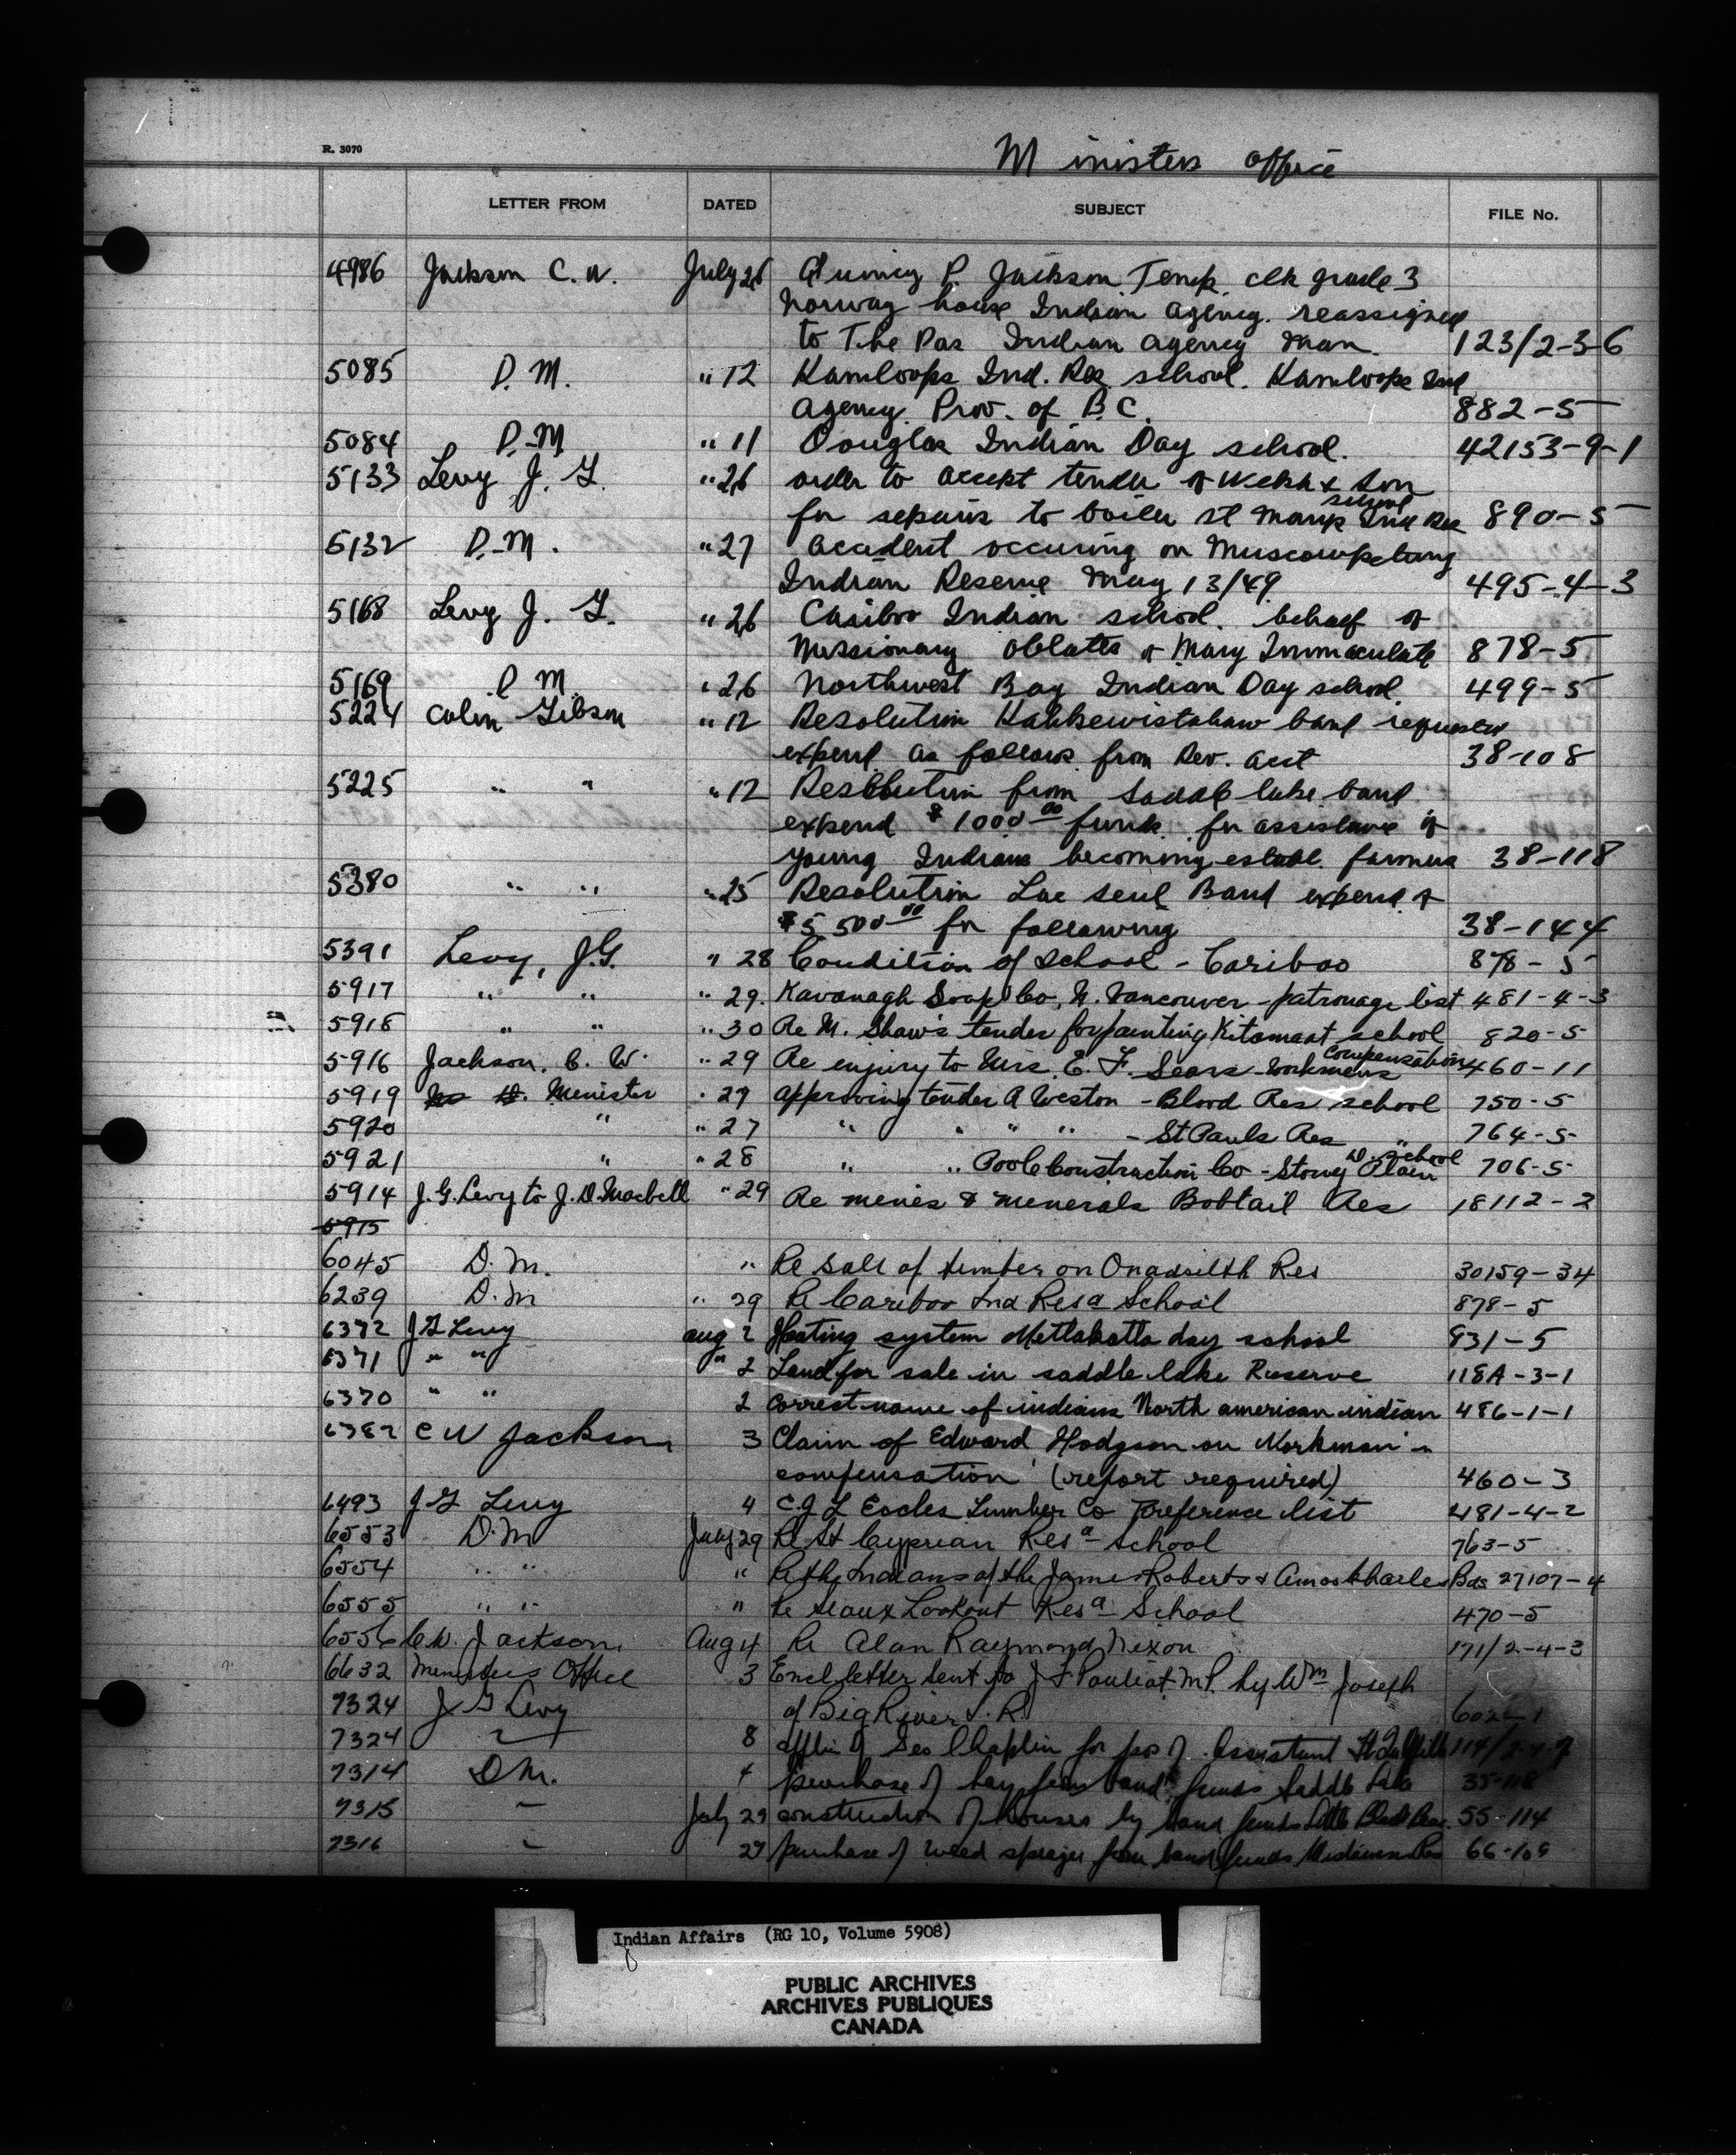 R. 3070
Ministers Office
LETTER FROM DATED SUBJECT FILE No.
4986 Jackson C. W. July 26 P. Jackson Temp. clk grade 3
Norway house Indian agency. reassigned
to The Pas Indian agency Man. 123/2-3-6
5085 D.M. " 12 Kamloops Ind. Res school. Kamloops Ind
agency Prov. of B.C. 882-5
5084 D.M " 11 Douglas Indian Day school. 42153-9-1
5133 Levy J. G. " 26 order to accept tender of & Son
for repairs to boiler St Marys Ind Res school 890-5
5132 D.M. " 27 accident occuring on Muscowpetung
Indian Reserve May 13/49 495-4-3
5168 Levy J. G. " 26 Cariboo Indian school. behalf of
Missionary Oblates of Mary Immaculate 878-5
5169 D M. " 26 Northwest Bay Indian Day school 499-5
5224 Colin Gibson " 12 Resolution Kahkewistahaw band requests
expend as follows from Rev. acct 38-108
5225 " " " 12 Resolution from Saddle lake band
expend $1000 00 funds for assistance of
young Indians becoming establ. farmers 38-118
5380 " " " 25 Resolution Lac Seul Band expend of
$5 500 00 for following 38-144
5391 Levy, J.G. " 28 Condition of School - Cariboo 878-5
5917 " " " 29. Kavanagh Soap Co, N. Vancouver - patronage list 481-4-3
5918 " " " 30 Re M. Shaw's tender for painting Kitamaat school 820-5
5916 Jackson, C. W. " 29 Re enjury to Mrs. E. F. Sears - workmens compensation 460-11
5919 Minister " 27 approving tender A Weston - Blood Res school 750-5
5920 " " 27 " " " " - St Pauls Res " 764-5
5921 " " 28 " " Poole Construction Co - Stony Plain D. School 706-5
5914 J. G. Levy to J. D. " 29 Re mines & minerals Bobtail Res 18112-2
5915
6045 D. M. " Re Sale of timber on Res 30159-34
6239 D. M " 29 Re Cariboo Ind Resa School 878-5
6372 J G Levy aug 2 Heating system Metlakatla day school 931-5
6371 " " " 2 Land for sale in saddle lake Reserve 118A-3-1
6370 " " 2 correct name of indians North american indian 486-1-1
6382 C W Jackson 3 Claim of Edward Hodgson on Workman's
compensation (report required) 460-3
6493 J G Levy 4 C. J L Eccles Lumber Co Preference list 481-4-2
6553 D. M July 29 Re St Cyprian Resa School 763-5
6554 " " " Re the Indians of the James Roberts & Amos Charles Bds 27107-4
6555 " " " Re Sioux Lookout Resa School 470-5
6556 C. W. Jackson Aug 4 Re Alan Raymond Nixon 171/2-4-3
6632 Ministers Office 3 Encl letter sent to J F Pouliot M.P. by Wm Joseph
7324 J G Levy of Big River I. R.
7324 " 8 applin of Geo Chaplin for pos of Assistant
7314 D M. 4 purchase of hay from band funds Saddle Lake
7315 " July 29 construction of houses by band funds Little Black Bear. 55-114
7316 " 27 purchase of weed sprayer from band funds Res
Indian Affairs (RG 10, Volume 5908)
PUBLIC ARCHIVES
ARCHIVES PUBLIQUES
CANADA